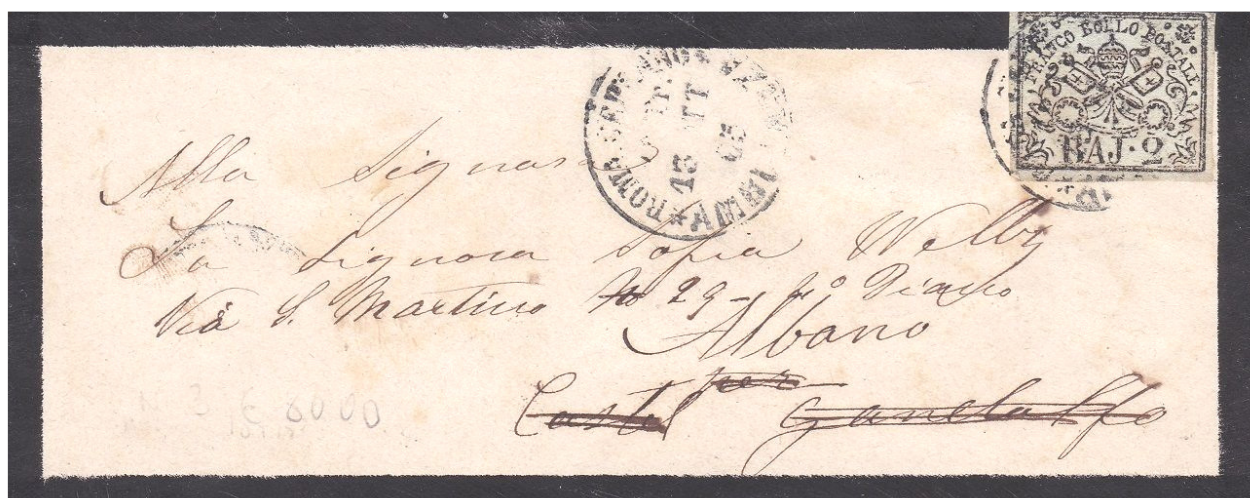 FRANCO BOLLO POSTALE
BAJ. 2
ROMA CEPRANO
13
Alla Signora
La Signora Sofia Welby
Via S. Martino No 29 - 1º Piano
Albano
per
Castel Gandolfo
8000